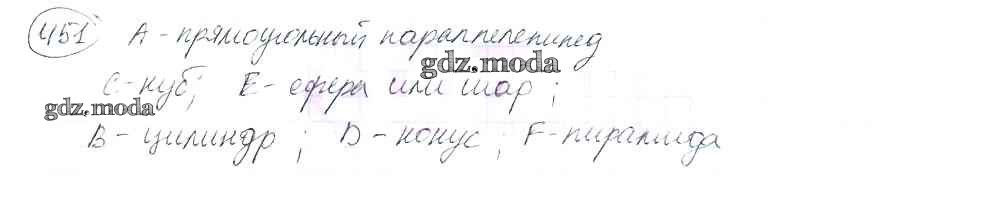 451 А - прямоугольный параллелепипед
gdz.moda
С - куб; Е - сфера или шар;
gdz.moda
В - цилиндр; D - конус; F - пирамида